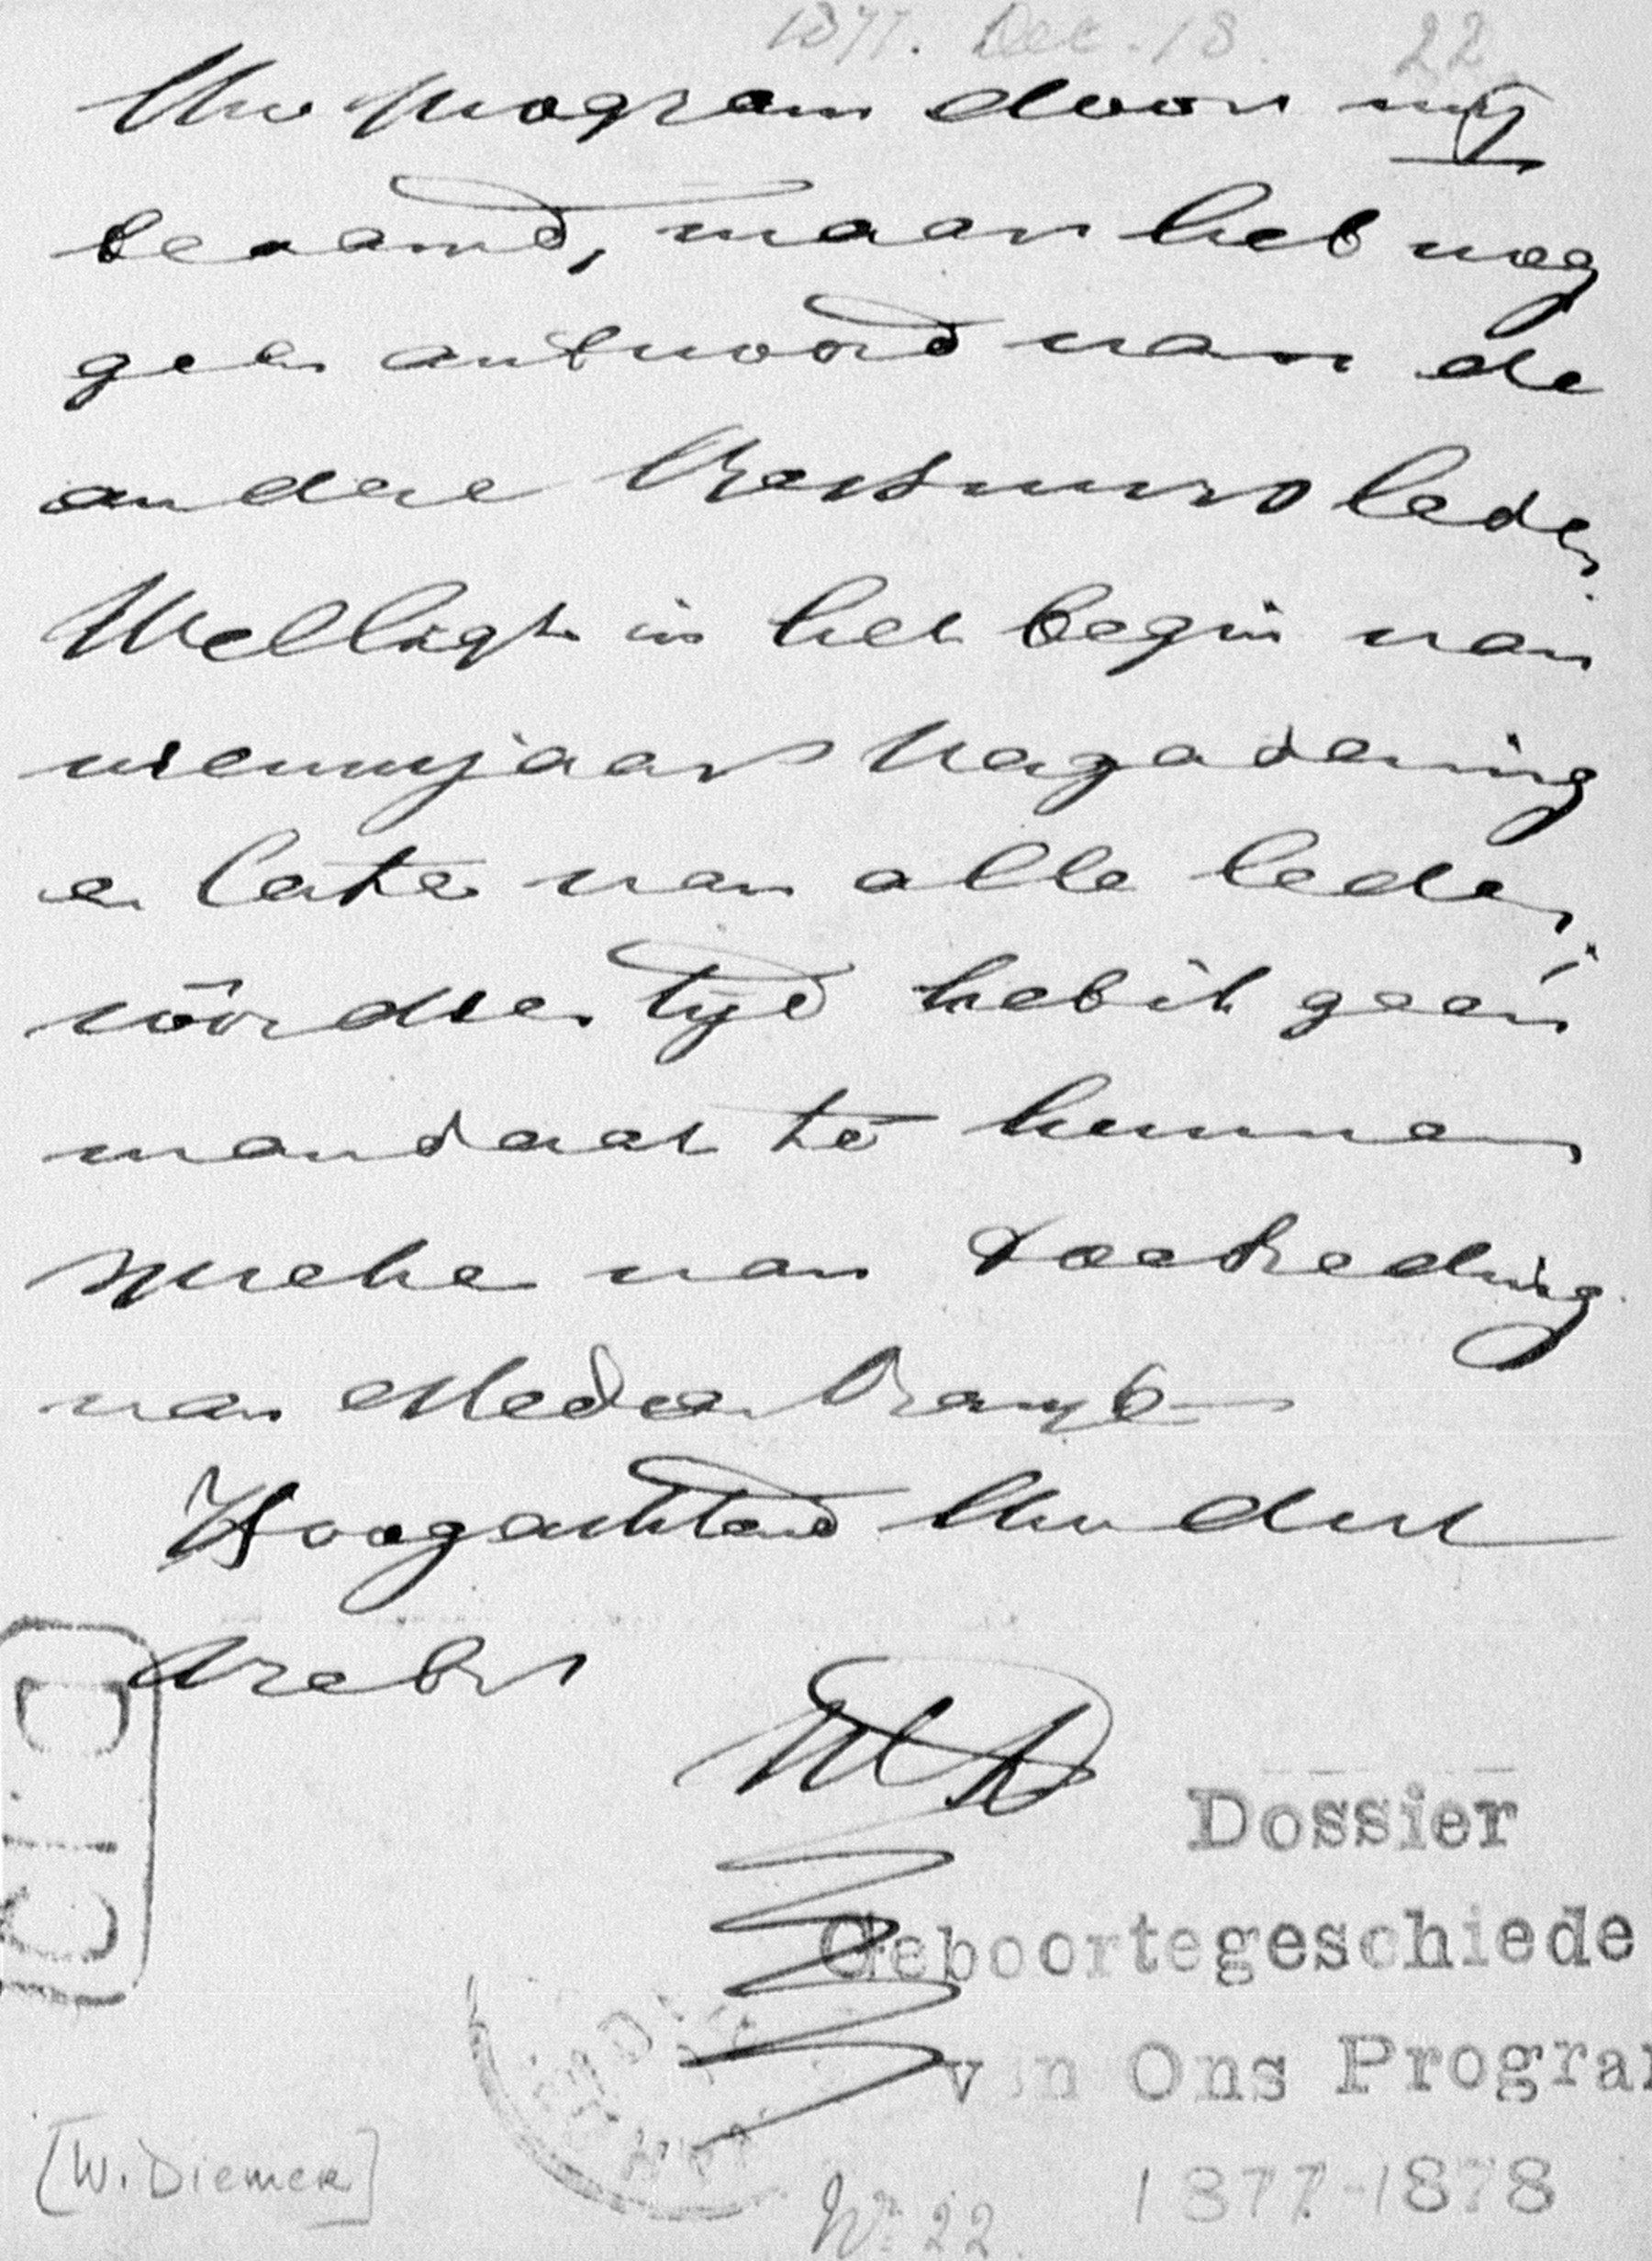 1877. Dec. 18. 22
Uw program door mij
beaamd, maar heb nog
geen antwoord van de
andere Bestuursleden
Welligt in het begin van
nieuwjaar Vergadering
en later van alle leden,
vóór dien tijd heb ik geen
mandaat te kunnen
spreken van toetreding
van Medea
Hoogachtend Uw dnst
br
WD
Dossier
Geboortegeschiede
van Ons Program
1877-1878
[W. Diemer]
No 22.